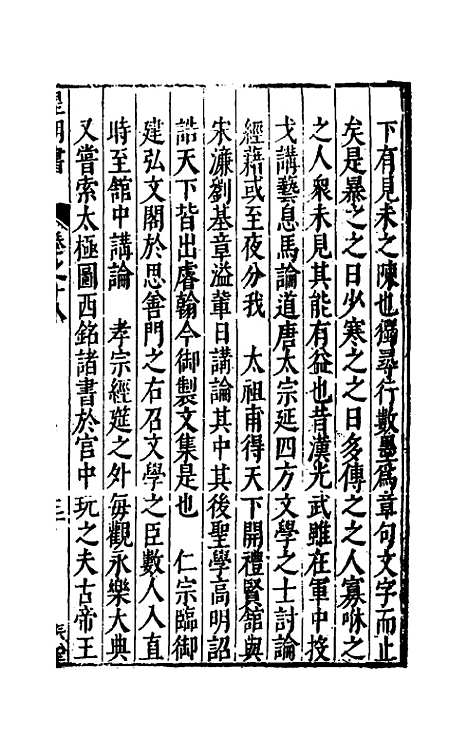 下有見未之陳也獨尋行數墨爲章句文字而止
矣是暴之之日少寒之之日多傳之之人寡咻之
之人衆未見其能有益也昔漢光武雖在軍中投
戈講藝息馬論道唐太宗延四方文學之士討論
經籍或至夜分我　太祖甫得天下開禮賢館與
宋濂劉基章溢軰日講論其中其後聖學高明詔
誥天下皆出睿翰今御製文集是也　仁宗臨御
建弘文閣於思善門之右召文學之臣數人入直
時至舘中講論　孝宗經筵之外毎觀永樂大典
又嘗索太極圖西銘諸書於官中玩之夫古帝王
皇明書
卷之十八